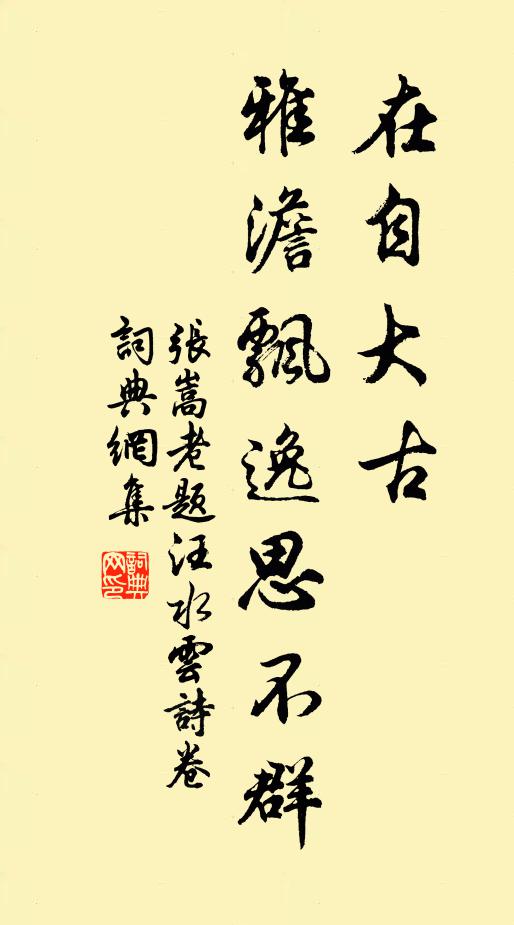 在自大古
雅澹飄逸思不群
張嵩老題汪水雲詩卷
詞典網集
詞典网印